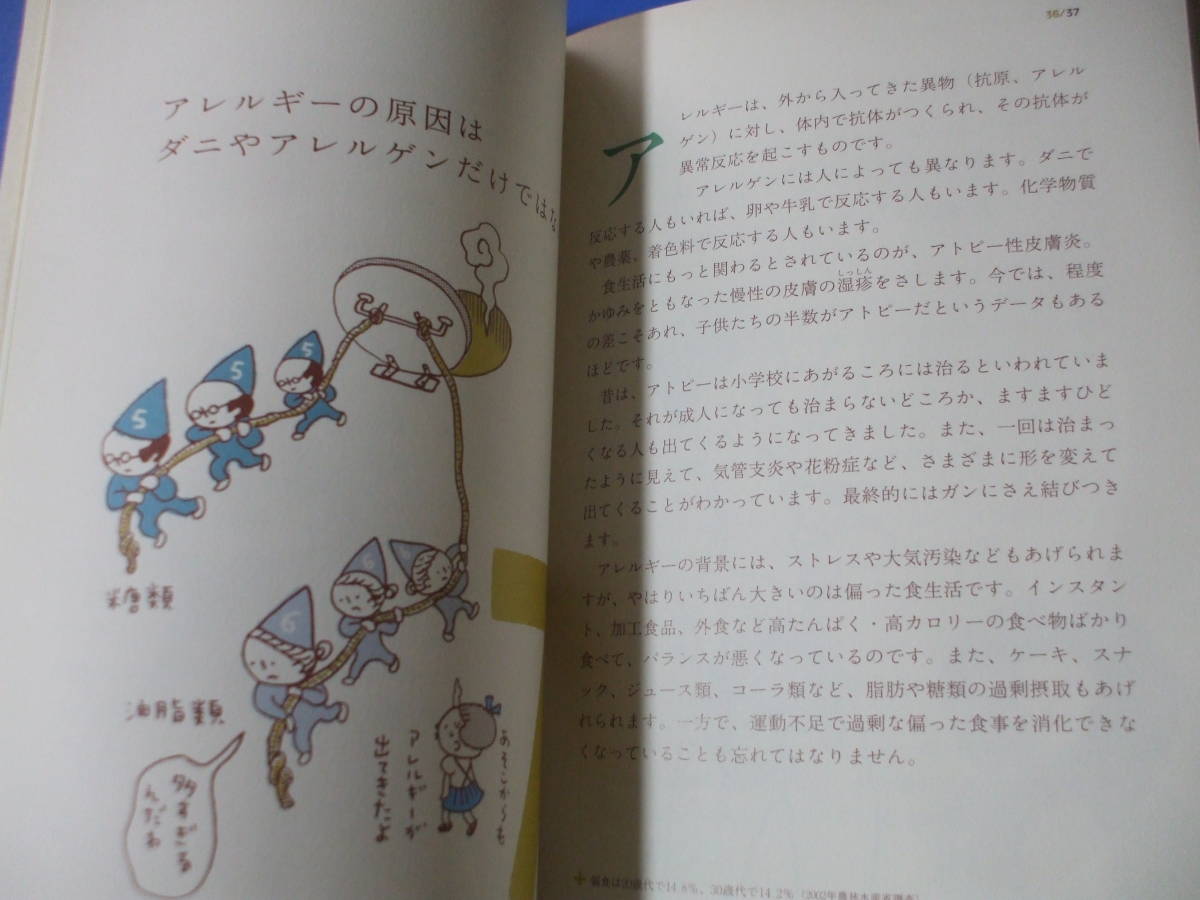 アレルギーの原因は
ダニやアレルゲンだけではな
5
5
5
糖類
6
6
油脂類
多すぎる
んだわ
あそこからも
アレルギーが
出てきたよ
36/37
アレルギーは、外から入ってきた異物（抗原、アレル
ゲン）に対し、体内で抗体がつくられ、その抗体が
異常反応を起こすものです。
アレルゲンには人によっても異なります。ダニで
反応する人もいれば、卵や牛乳で反応する人もいます。化学物質
や農薬、着色料で反応する人もいます。
食生活にもっと関わるとされているのが、アトピー性皮膚炎。
かゆみをともなった慢性の皮膚の湿疹をさします。今では、程度
しっしん
の差こそあれ、子供たちの半数がアトピーだというデータもある
ほどです。
昔は、アトピーは小学校にあがるころには治るといわれていま
した。それが成人になっても治まらないどころか、ますますひど
くなる人も出てくるようになってきました。また、一回は治まっ
たように見えて、気管支炎や花粉症など、さまざまに形を変えて
出てくることがわかっています。最終的にはガンにさえ結びつき
ます。
アレルギーの背景には、ストレスや大気汚染などもあげられま
すが、やはりいちばん大きいのは偏った食生活です。インスタン
ト、加工食品、外食など高たんぱく・高カロリーの食べ物ばかり
食べて、バランスが悪くなっているのです。また、ケーキ、スナ
ック、ジュース類、コーラ類など、脂肪や糖類の過剰摂取もあげ
られます。一方で、運動不足で過剰な偏った食事を消化できな
くなっていることも忘れてはなりません。
歳代で14.8%、30歳代で14.2%（2002年農林水産省調査）